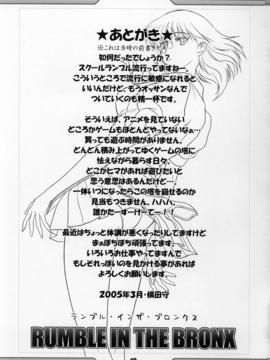 ★あとがき★
※これは当時の前書きです
如何だったでしょうか？
スクールランブル流行ってますねー。
こういうところで流行に敏感になれると
いいんだけど、もうオッサンなんで
ついていくのも精一杯です。
そういえば、アニメを見ていない
どころかゲームもほとんどやってないなぁ…
買っても遊ぶ時間がありません。
どんどん積み上がってゆくゲームの塔に
怯えながら暮らす日々。
どこかヒマがあれば遊びたいと
思う意思はあるんだけど…
一体いつになったらこの塔を崩せるのか
見当もつきません。ハハハ、
誰かたーすーけーてー！！
最近はちょっと体調が悪くなったりしてますけど
まぁぼちぼち頑張ってます。
いろいろお仕事やってますんで
もしそれっぽいのを見かける事があれば
よろしくお願いします。
2005年3月・横田守
ランブル・イン・ザ・ブロンクス
RUMBLE IN THE BRONX